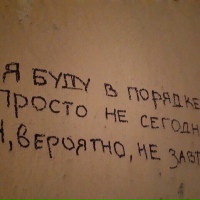 Я БУДУ В ПОРЯДКЕ
ПРОСТО НЕ СЕГОДН
И, ВЕРОЯТНО, НЕ ЗАВТ